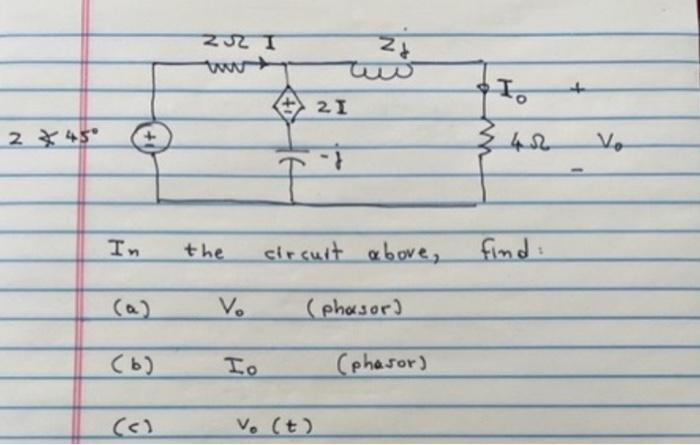 2Ω I 2j
2I I₀ +
2 ∠ 45° ± -j 4Ω V₀
-
In the circuit above, find:
(a) V₀ (phasor)
(b) I₀ (phasor)
(c) V₀(t)